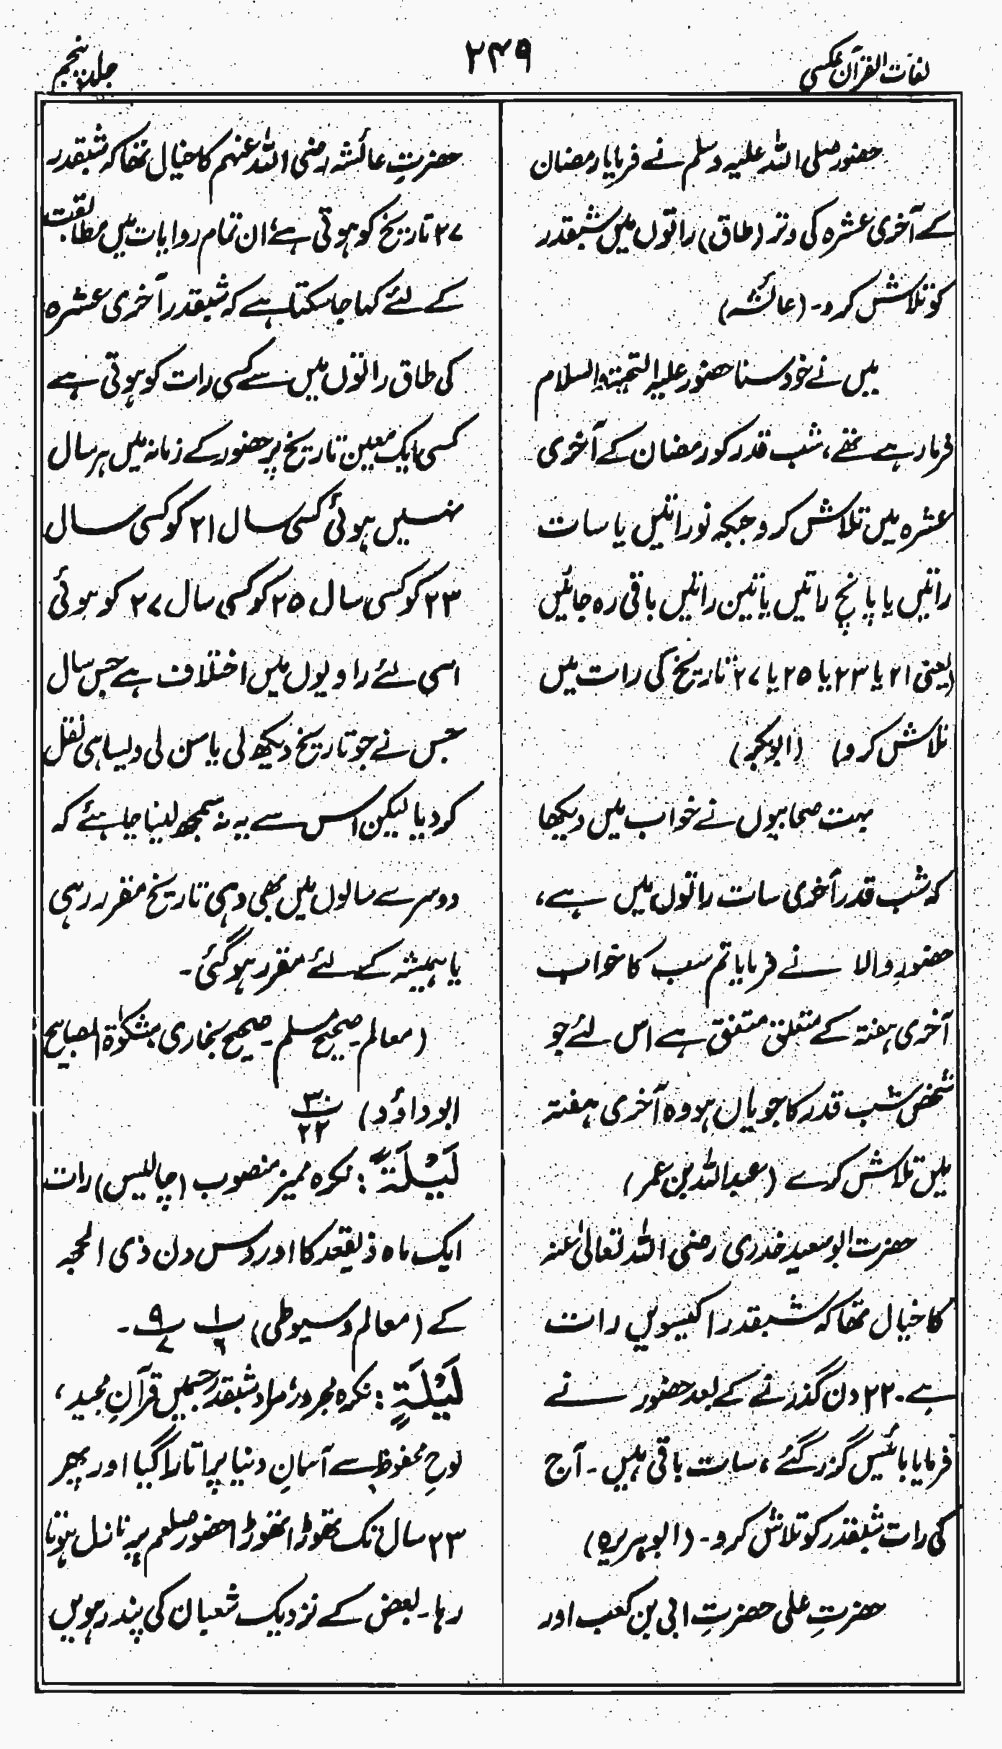 لغات القرآن عکسی
۲۴۹
جلد پنجم
حضور صلی اللہ علیہ وسلم نے فرمایا رمضان
کے آخری عشرہ کی وتر (طاق) راتوں میں شبقدر
کو تلاش کرو۔ (عائشہ)
میں نے خود سنا حضور علیہ التحیۃ والسلام
فرما رہے تھے، شب قدر کو رمضان کے آخری
عشرہ میں تلاش کرو جبکہ نو راتیں یا سات
راتیں یا پانچ راتیں یا تین راتیں باقی رہ جائیں
(یعنی ۲۱ یا ۲۳ یا ۲۵ یا ۲۷ تاریخ کی رات میں
تلاش کرو) (ابوبکر)
بہت صحابیوں نے خواب میں دیکھا
کہ شب قدر آخری سات راتوں میں ہے،
حضورِ والا نے فرمایا تم سب کا خواب
آخری ہفتہ کے متعلق متفق ہے اس لئے جو
شخص شب قدر کا جویاں ہو وہ آخری ہفتہ
میں تلاش کرے (عبداللہ بن عمر)
حضرت ابو سعید خدری رضی اللہ تعالیٰ عنہ
کا خیال تھا کہ شبقدر اکیسویں رات
ہے۔ ۲۲ دن گذرنے کے بعد حضور نے
فرمایا بائیس گزر گئے، سات باقی ہیں۔ آج
کی رات شبقدر کو تلاش کرو۔ (ابوہریرہ)
حضرتِ علی حضرتِ ابی بن کعب اور
حضرتِ عائشہ رضی اللہ عنہم کا خیال تھا کہ شبقدر
۲۷ تاریخ کو ہوتی ہے ان تمام روایات میں مطابقت
کے لئے کہا جاسکتا ہے کہ شبقدر آخری عشرہ
کی طاق راتوں میں سے کسی رات کو ہوتی ہے
کسی ایک معین تاریخ پر حضور کے زمانہ میں ہر سال
نہیں ہوئی کسی سال ۲۱ کو کسی سال
۲۳ کو کسی سال ۲۵ کو کسی سال ۲۷ کو ہوئی
اسی لئے راویوں میں اختلاف ہے جس سال
جس نے جو تاریخ دیکھ لی یا سن لی ویسا ہی نقل
کردیا لیکن اس سے یہ نہ سمجھ لینا چاہئے کہ
دوسرے سالوں میں بھی وہی تاریخ مقرر رہی
یا ہمیشہ کے لئے مقرر ہوگئی۔
(معالم۔ صحیح مسلم۔ صحیح بخاری، مشکوٰۃ المصابیح
ابوداؤد) ۳۰/۲۲
لَیْلَۃً: نکرہ ممیز منصوب (چالیس) رات
ایک ماہ ذیقعد کا اور دس دن ذی الحجہ
کے (معالم و سیوطی) ۱/۶ ۹/۷۔
لَیْلَۃٍ: نکرہ مجرور، مراد شبقدر جسمیں قرآنِ مجید،
لوحِ محفوظ سے آسمانِ دنیا پر اتارا گیا اور پھر
۲۳ سال تک تھوڑا تھوڑا حضور صلعم پر نازل ہوتا
رہا۔ بعض کے نزدیک شعبان کی پندرہویں